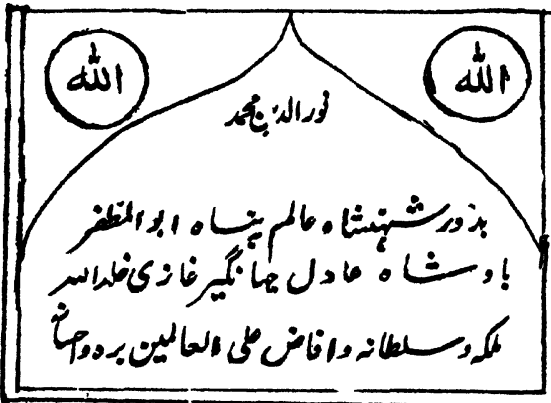 الله
الله
نورالدین محمد
بدور شهنشاه عالم پناه ابوالمظفر
بادشاه عادل جهانگیر غازی خلد الله
ملکه و سلطانه و افاض علی العالمین بره و احسانه